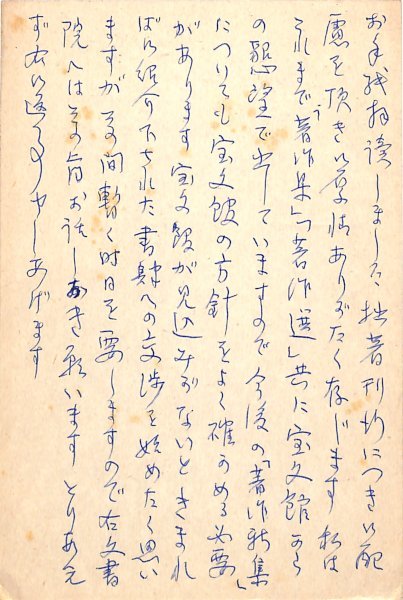 お手紙拝読しました、拙著刊行につき御配
慮を頂き御厚情ありがたく存じます 私は
これまで「著作集」「著作選」共に宝文館から
の懇望で出していますので今後の「著作新集」
についても宝文館の方針をよく確かめる必要
があります 宝文館が見込みがないときまれ
ば御紹介下された書肆への交渉を始めたく思い
ますが その間暫く時日を要しますので右文書
院へはその旨お話しおき願います とりあえ
ず右御返事申しあげます